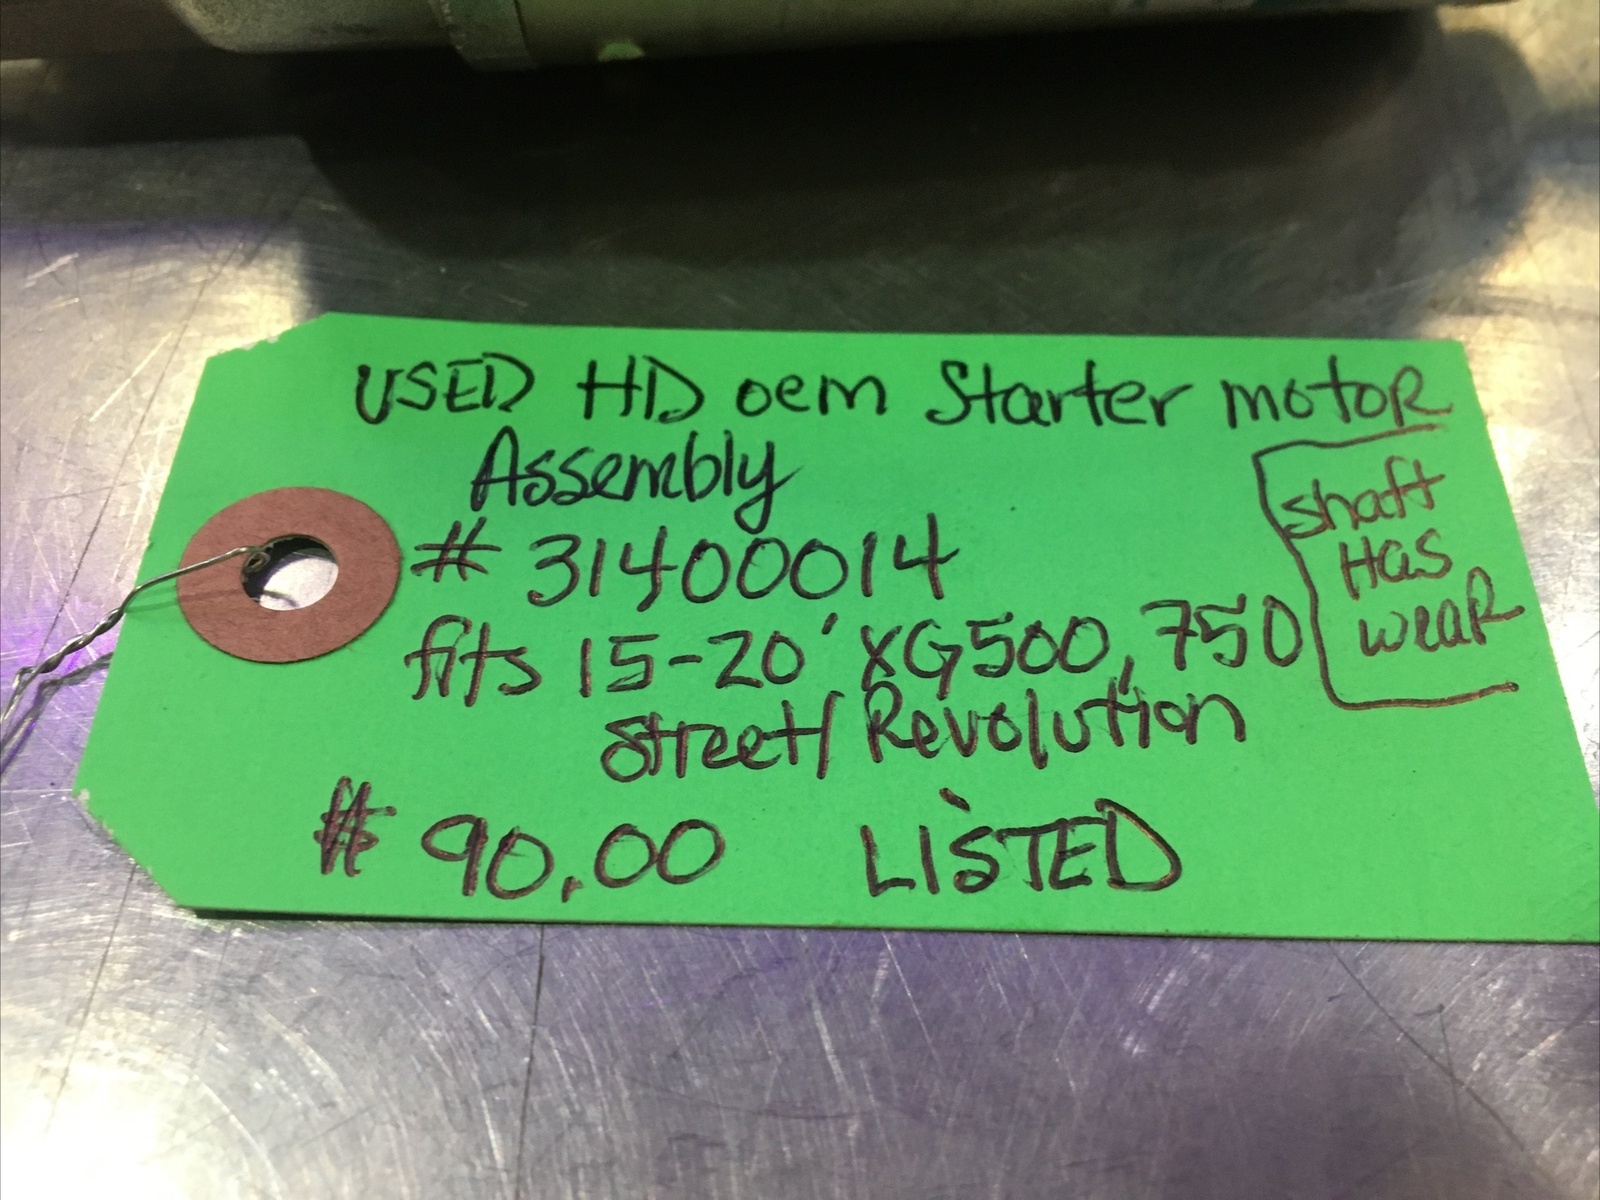 USED HD oem Starter motor
Assembly
# 31400014
fits 15-20' XG500, 750
Street/Revolution
$ 90.00 LISTED
shaft
Has
wear